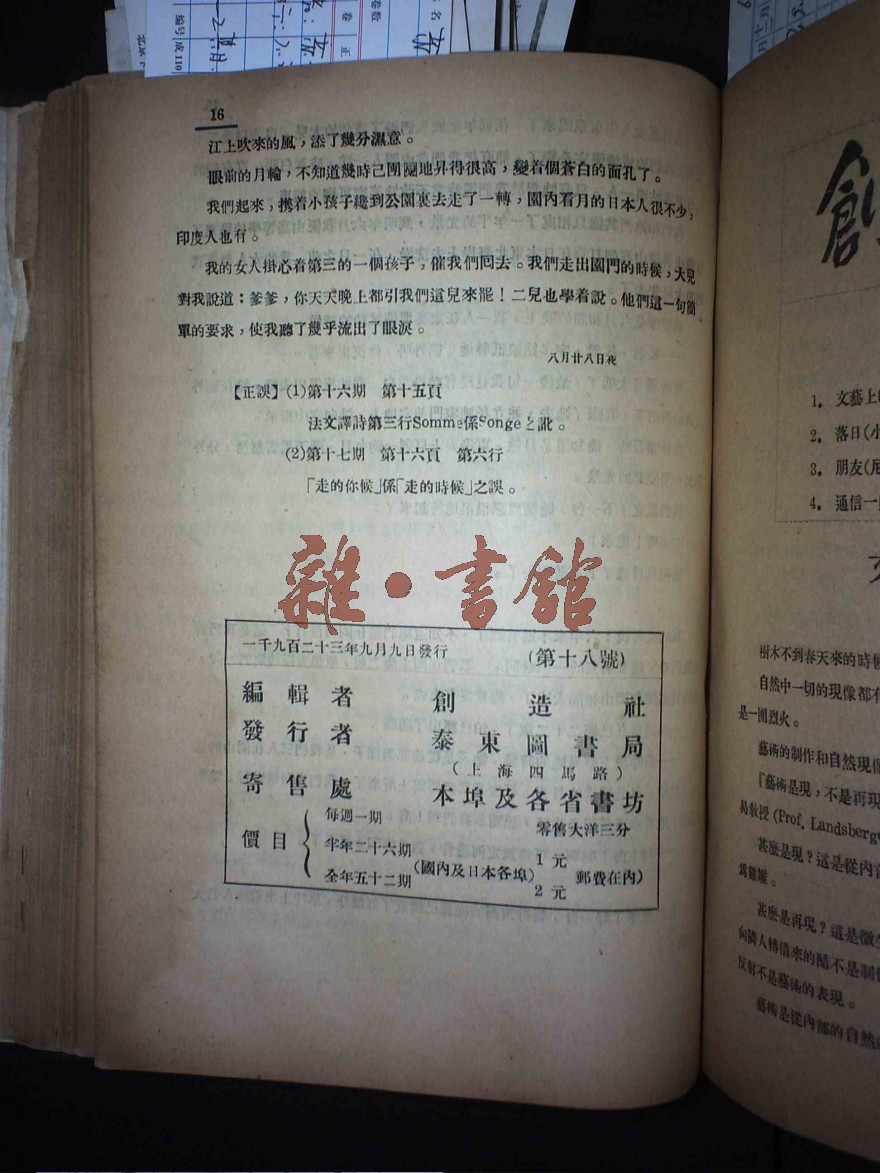 16
江上吹來的風，添了幾分濕意。
眼前的月輪，不知道幾時己團圞地昇得很高，變着個蒼白的面孔了。
我們起來，携着小孩子纔到公園裏去走了一轉，園內看月的日本人很不少，
印度人也有。
我的女人掛心着第三的一個孩子，催我們囘去。我們走出園門的時候，大兒
對我說道：爹爹，你天天晚上都引我們這兒來罷！二兒也學着說。他們這一句簡
單的要求，使我聽了幾乎流出了眼淚。
八月廿八日夜
【正誤】(1)第十六期 第十五頁
法文譯詩第三行Somme係Songe之訛。
(2)第十七期 第十六頁 第六行
「走的你候」係「走的時候」之誤。
雜•書館
一千九百二十三年九月九日發行 (第十八號)
編輯者 創造社
發行者 泰東圖書局
(上海四馬路)
寄售處 本埠及各省書坊
價目
每週一期 零售大洋三分
半年二十六期 1元
(國內及日本各埠) 郵費在內)
全年五十二期 2元
創
1. 文藝上
2. 落日(小
3. 朋友(
4. 通信一
樹木不到春天來的時候
自然中一切的現像都有
是一團烈火。
藝術的制作和自然現像
『藝術是現，不是再現
曷教授 (Prof. Landsberg
甚麼是現？這是從內
爲雞雛。
甚麼是再現？這是微生
向隣人轉借來的醋不是制
反射不是藝術的表現。
藝術是從內部的自然的